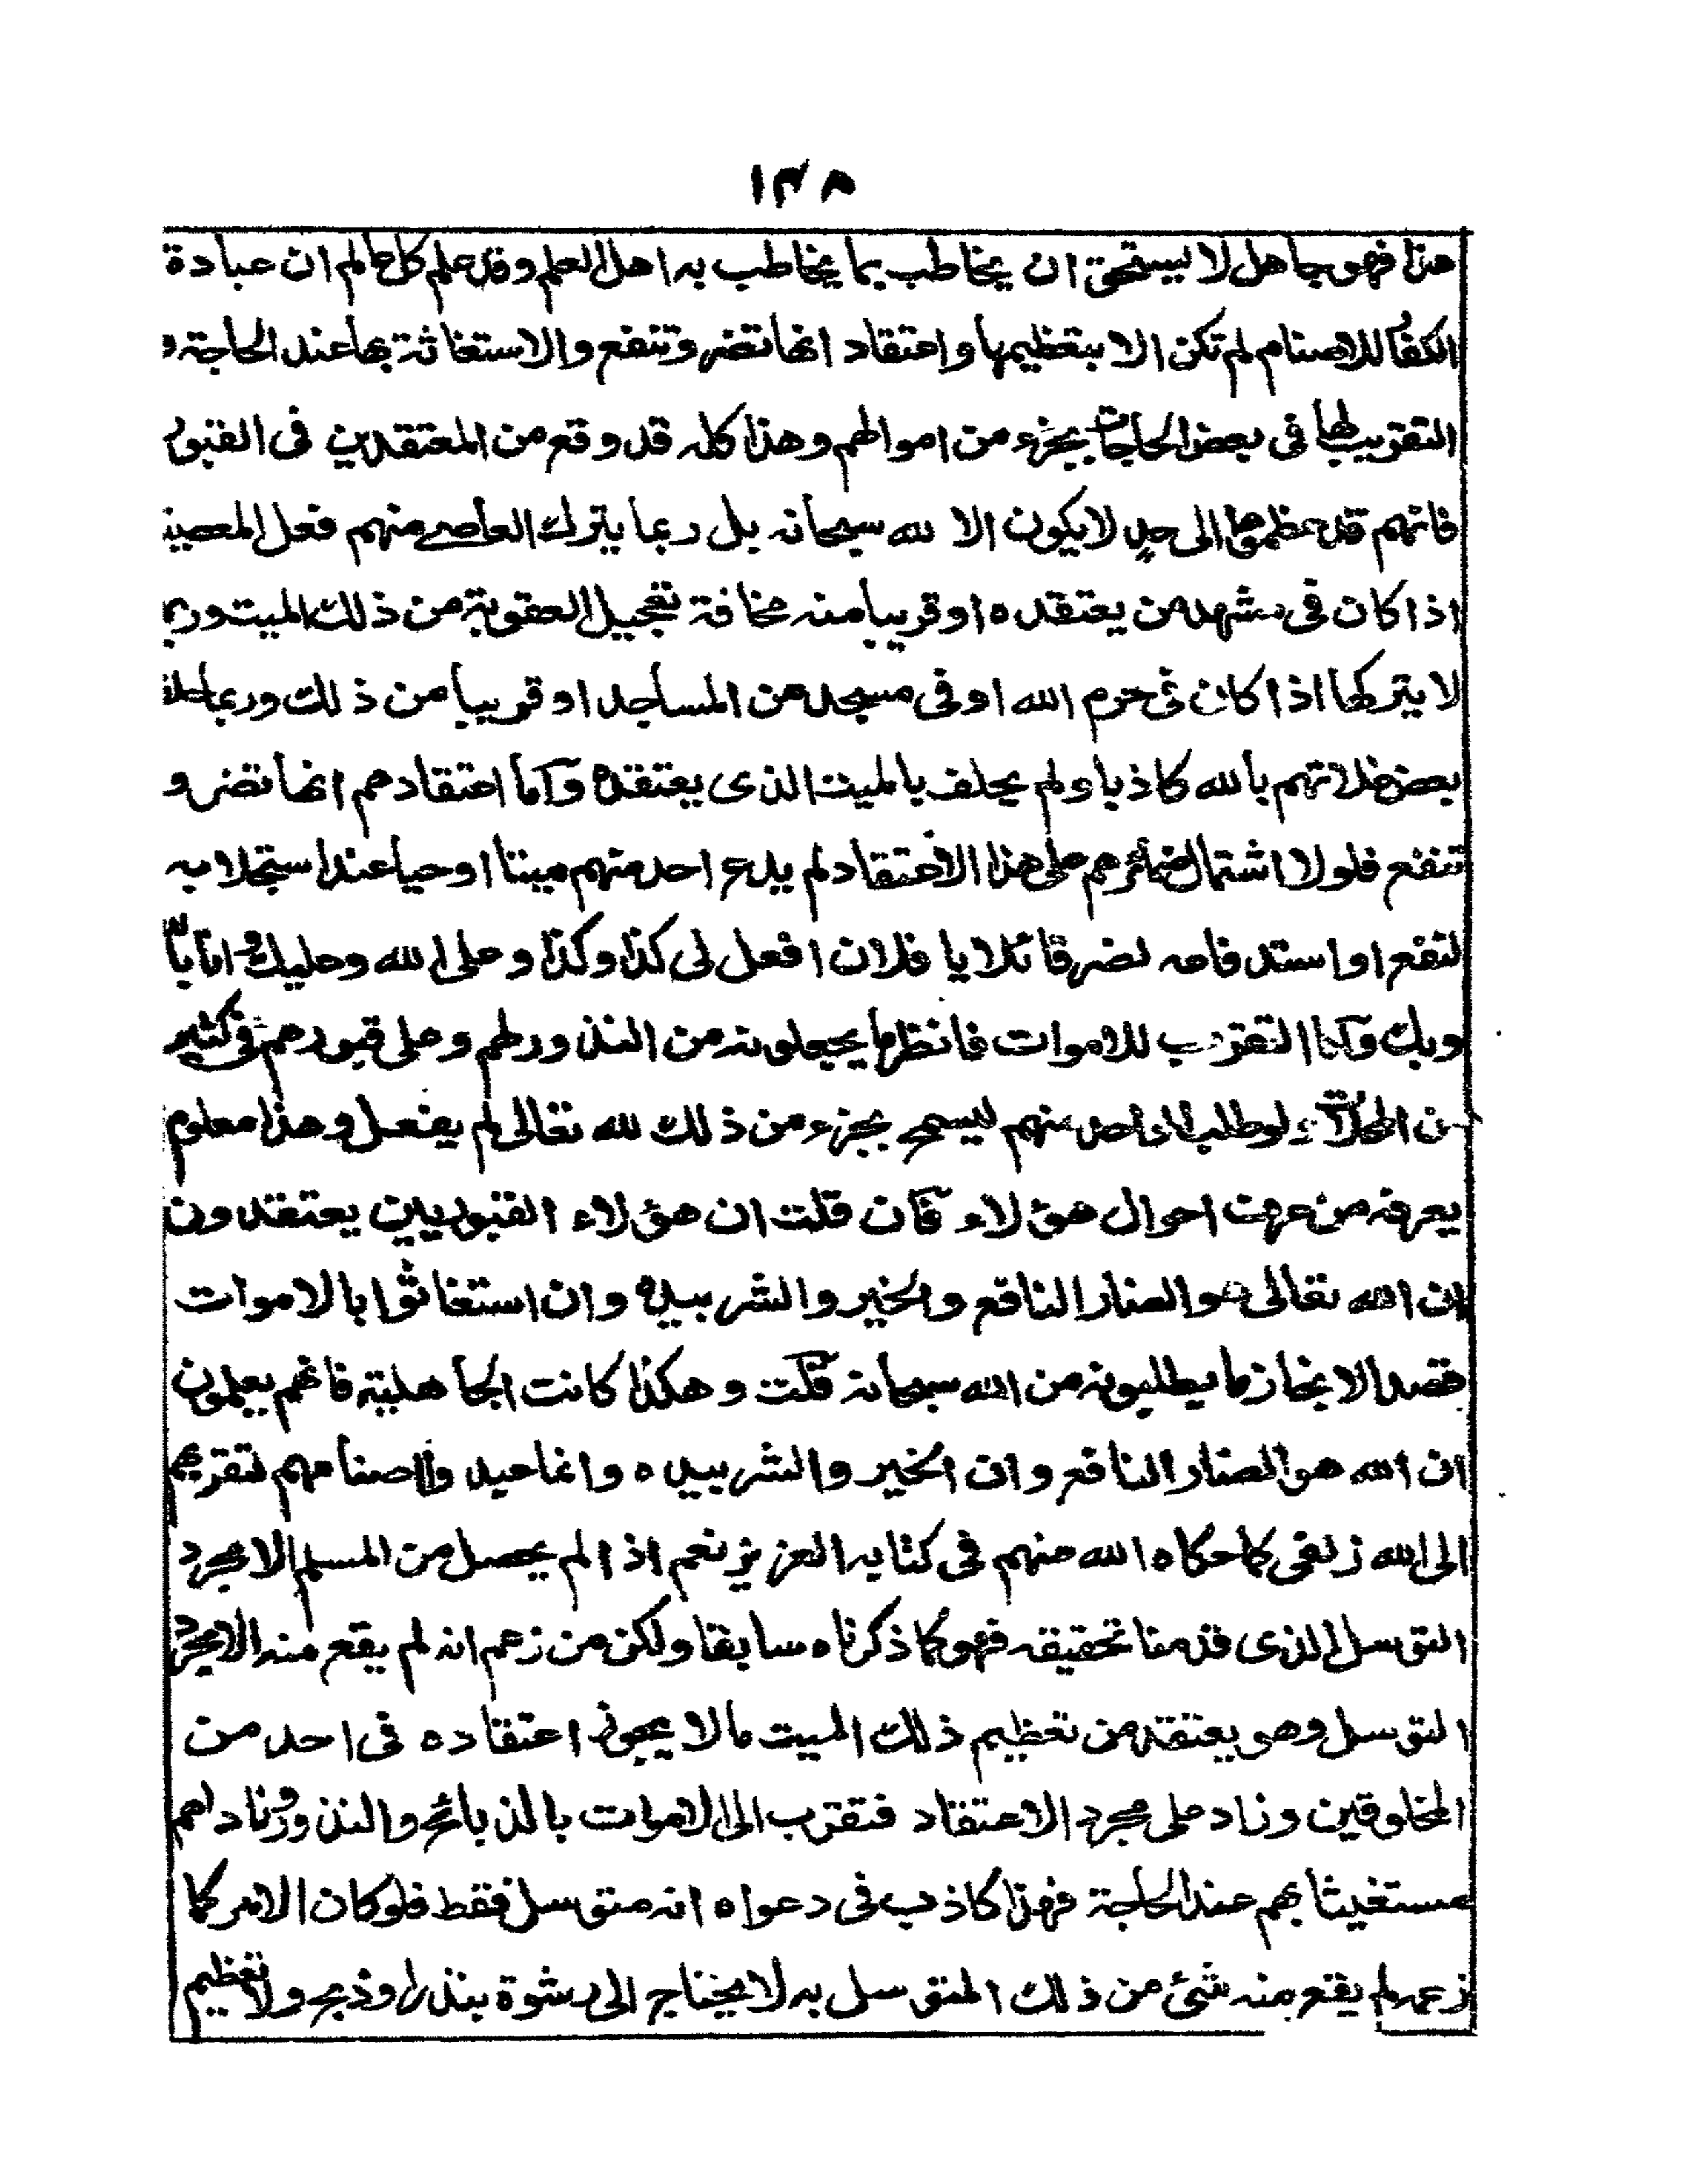 ١٣٨
هذا فهو جاهل لا يستحق ان يخاطب بما يخاطب به اهل العلم وقد علم كل عالم ان عبادة
الكفار للاصنام لم تكن الا بتعظيمها واعتقاد انها تضر وتنفع والاستغاثة بها عند الحاجة و
التقريب لها فى بعض الحاجات بجزء من اموالهم وهذا كله قد وقع من المعتقدين فى القبور
فانهم قد عظموها الى حد لا يكون الا لله سبحانه بل ربما يترك العاصى منهم فعل المعصية
اذا كان فى مشهد من يعتقده او قريبا منه مخافة تعجيل العقوبة من ذلك الميت وربما
لا يتركها اذا كان فى حرم الله او فى مسجد من المساجد او قريبا من ذلك وربما حلف
بعض غلاتهم بالله كاذبا ولم يحلف بالميت الذى يعتقده واما اعتقادهم انها تضر و
تنفع فلولا اشتمال ضمائرهم على هذا الاعتقاد لم يدع احد منهم ميتا او حيا عند استجلابه
لنفع او استدفاعه لضر قائلا يا فلان افعل لى كذا وكذا وعلى الله وعليك وانا بالله
وبك واما التقرب للاموات فانظر ما يجعلونه من النذور لهم وعلى قبورهم فى كثير
من المحلات ولو طلب الواحد منهم ليسمح بجزء من ذلك لله تعالى لم يفعل وهذا معلوم
يعرفه من عرف احوال هؤلاء فان قلت ان هؤلاء القبوريين يعتقدون
ان الله تعالى هو الضار النافع والخير والشر بيده وان استغاثوا بالاموات
قصدا لانجاز ما يطلبونه من الله سبحانه قلت وهكذا كانت الجاهلية فانهم يعلمون
ان الله هو الضار النافع وان الخير والشر بيده وانما عبدوا اصنامهم لتقربهم
الى الله زلفى كما حكاه الله عنهم فى كتابه العزيز نعم اذا لم يحصل من المسلم الا مجرد
التوسل الذى قدمنا تحقيقه فهو كما ذكرناه سابقا ولكن من زعم انه لم يقع منه الا مجرد
التوسل وهو يعتقد من تعظيم ذلك الميت ما لا يجوز اعتقاده فى احد من
المخلوقين وزاد على مجرد الاعتقاد فتقرب الى الاموات بالذبائح والنذور وناداهم
مستغيثا بهم عند الحاجة فهذا كاذب فى دعواه انه متوسل فقط فلو كان الامر كما
زعمه لم يقع منه شئ من ذلك المتوسل به لا يحتاج الى رشوة بنذر او ذبح ولا تعظيم